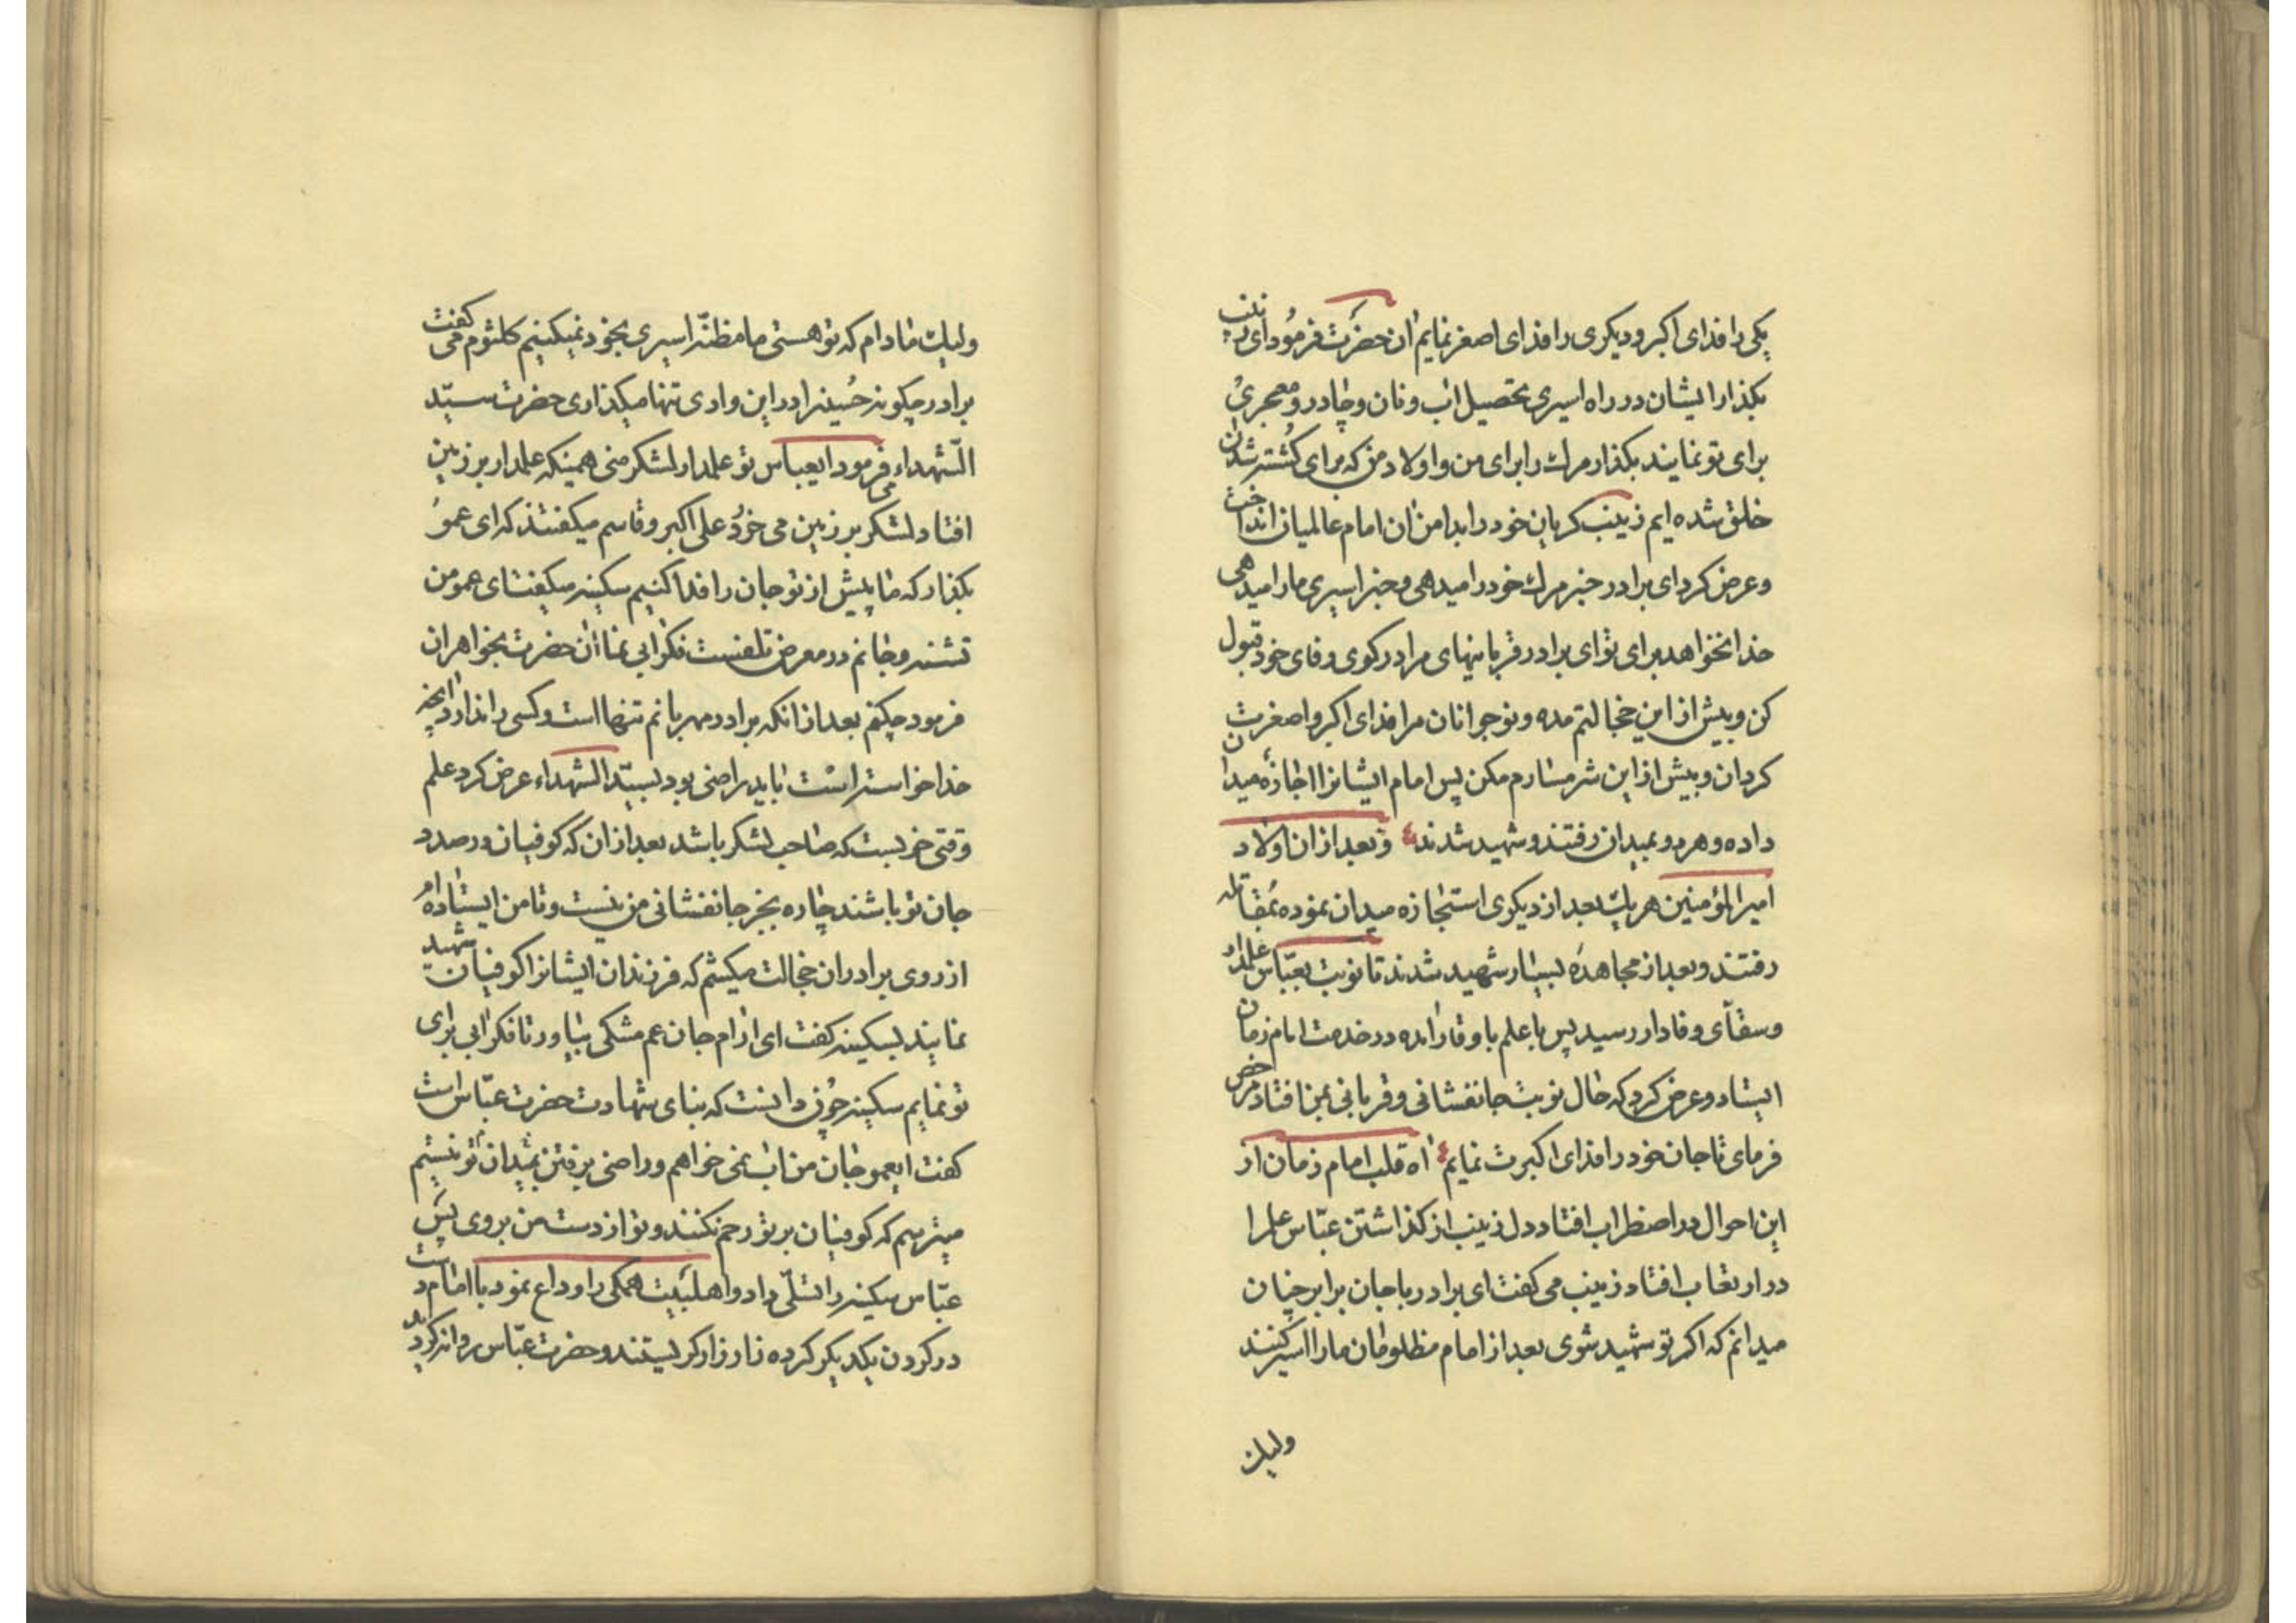 یکی را فدای اکبر و دیکری را فدای اصغر نمایم ان حضرت فرمود ای زینب
بکذار ایشان در راه اسیری تحصیل اب و نان و چادر و معجری
برای تو نمایند بکذار مرک را برای من و اولاد من که برای کشته شدن
خلق شده ایم زینب کریان خود را بدامن ان امام عالمیان انداخت
و عرض کرد ای برادر خبر مرک خود را میدهی و خبر اسیری ما را میدهی
خدا نخواهد برای تو ای برادر قربانیهای مرا در کوی وفای خود قبول
کن و بیش از این خجالتم مده و نوجوانان مرا فدای اکبر و اصغرت
کردان و بیش از این شرمسارم مکن پس امام ایشانرا اجازه میدان
داده و هر دو بمیدان رفتند و شهید شدند و بعد از ان اولاد
امیر المؤمنین هر یک بعد از دیکری استجازه میدان نموده بمقاتله
رفتند و بعد از مجاهده بسیار شهید شدند تا نوبت بعباس علمدار
و سقای وفادار رسید پس با علم با وقار امده در خدمت امام زمان
ایستاد و عرض کرد که حال نوبت جانفشانی و قربانی بمن افتاد مرخص
فرمای تا جان خود را فدای اکبرت نمایم اه قلب امام زمان از
این احوال در اضطراب افتاد دل زینب از کذاشتن عباس علم را
در ارتعاب افتاد زینب می کفت ای برادر با جان برابر چنان
میدانم که اکر تو شهید شوی بعد از امام مظلومان ما را اسیر کنند
ولیک
ولیک مادام که تو هستی ما مظنه اسیری بخود نمیکنیم کلثوم می کفت
برادر چکونه حسینرا در این وادی تنها میکذاری حضرت سید
الشهداء می فرمود ایعباس تو علمدار لشکر منی همینکه علمدار بر زمین
افتاد لشکر بر زمین می خورد علی اکبر و قاسم میکفتند که ای عمو
بکذار که ما پیش از تو جان را فدا کنیم سکینه میکفت ای عمو من
تشنه و جانم در معرض تلفست فکر ابی نما ان حضرت بخواهران
فرمود چکنم بعد از انکه برادر مهربانم تنها است و کسی را ندارد انچه
خدا خواسته است باید راضی بود بسید الشهداء عرض کرد علم
وقتی خوبست که صاحب لشکر باشد بعد از ان که کوفیان در صدد
جان تو باشند چاره بجز جانفشانی من نیست و تا من ایستاده ام
از روی برادران خجالت میکشم که فرزندان ایشانرا کوفیان شهید
نمایند بسکینه کفت ای ارام جان عم مشکی بیاور تا فکر ابی برای
تو نمایم سکینه چون دانست که بنای شهادت حضرت عباس است
کفت ایعمو جان من اب نمی خواهم و راضی برفتن بمیدان تو نیستم
میترسم که کوفیان بر تو رحم نکنند و تو از دست من بروی پس
عباس سکینه را تسلی داد و اهلبیت همکی را وداع نمود با امام دست
در کردن یکدیکر کرده زار زار کریستند و حضرت عباس روانه کردید